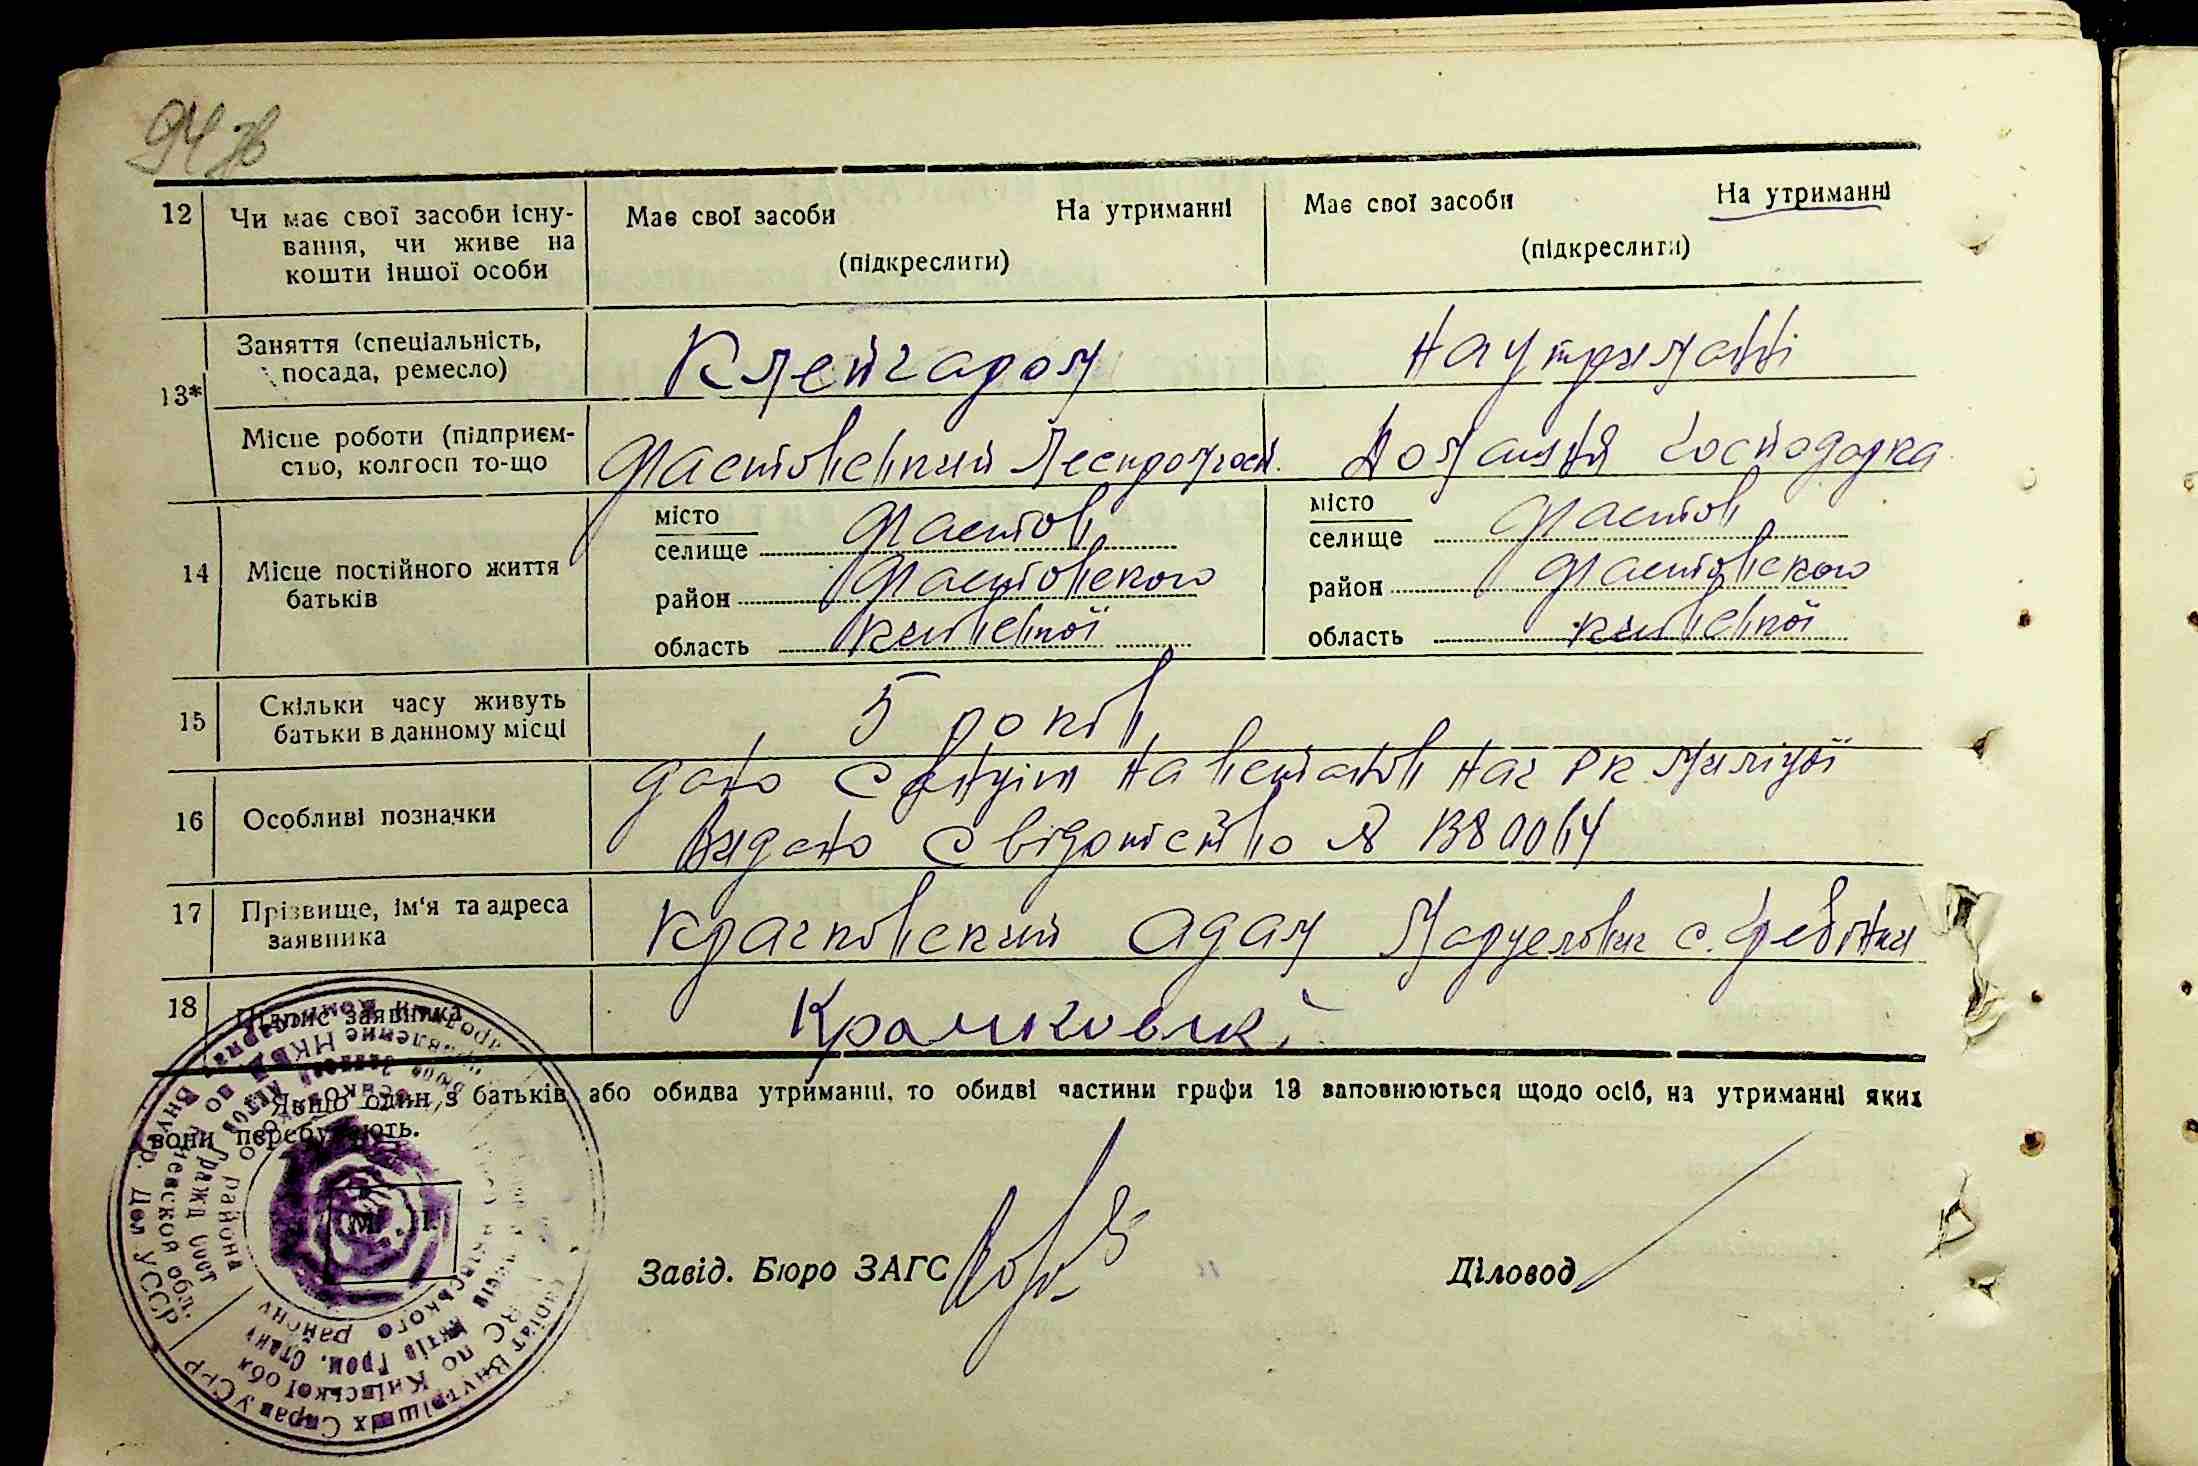 94 зв
12 Чи має свої засоби існу-
вання, чи живе на
кошти іншої особи
Має свої засоби На утриманні
(підкреслити)
Має свої засоби На утриманні
(підкреслити)
13*
Заняття (спеціальність,
посада, ремесло)
Клейгаром
На утриманні
Місце роботи (підприєм-
ство, колгосп то-що
Фастовський Леспромхоз.
Домашня господарка
14 Місце постійного життя
батьків
місто
селище Фастов
район Фастовского
область київської
місто
селище Фастов
район Фастовского
область київської
15 Скільки часу живуть
батьки в данному місці
5 років
16 Особливі позначки
дано на РК Міліції
Видано свідоцтво №
17 Прізвище, ім'я та адреса
заявника
Крачковский Адам с.
18 Підпис заявника
Якщо один з батьків або обидва утриманні, то обидві частини графи 13 заповнюються щодо осіб, на утриманні яких
вони перебувають.
М. П.
Завід. Бюро ЗАГС
Діловод
Внутр. Дел УССР
Киевской обл.
района
Внутрішніх Справ УСРР
по Київської обл
Актів Гром. Стану
району